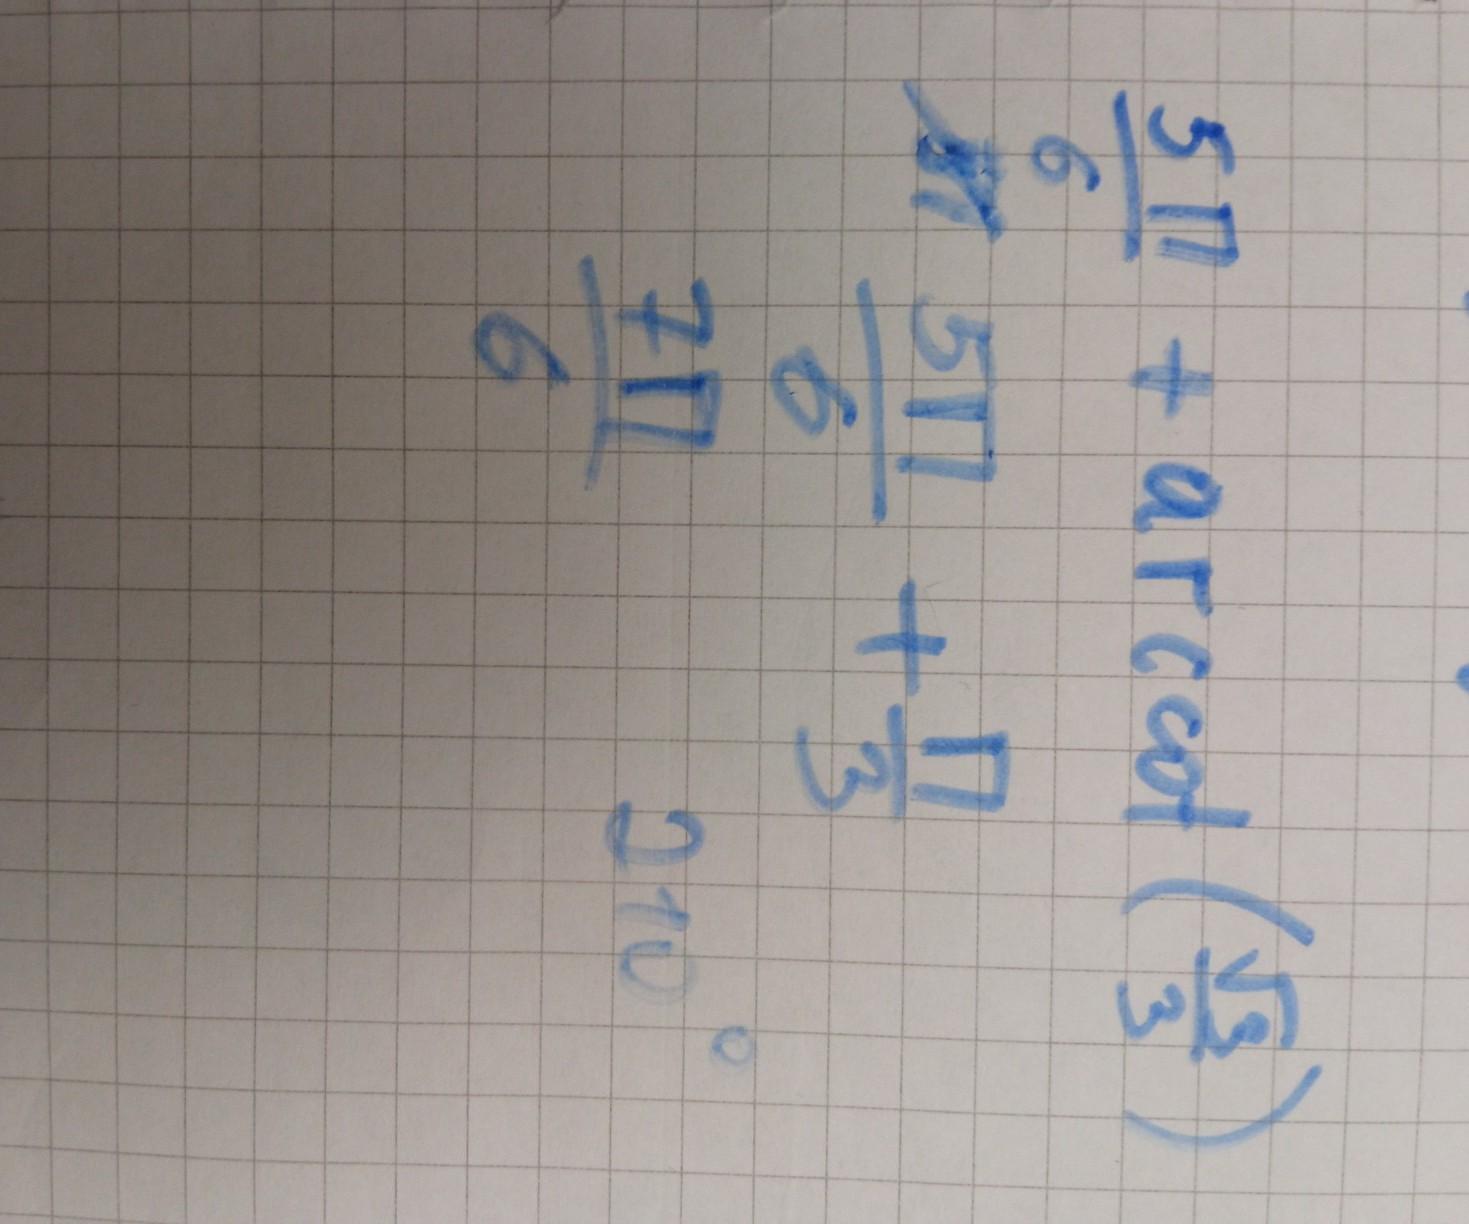 5П/6 + arccot (√3/3)
5П/6 + П/3
7П/6 210°